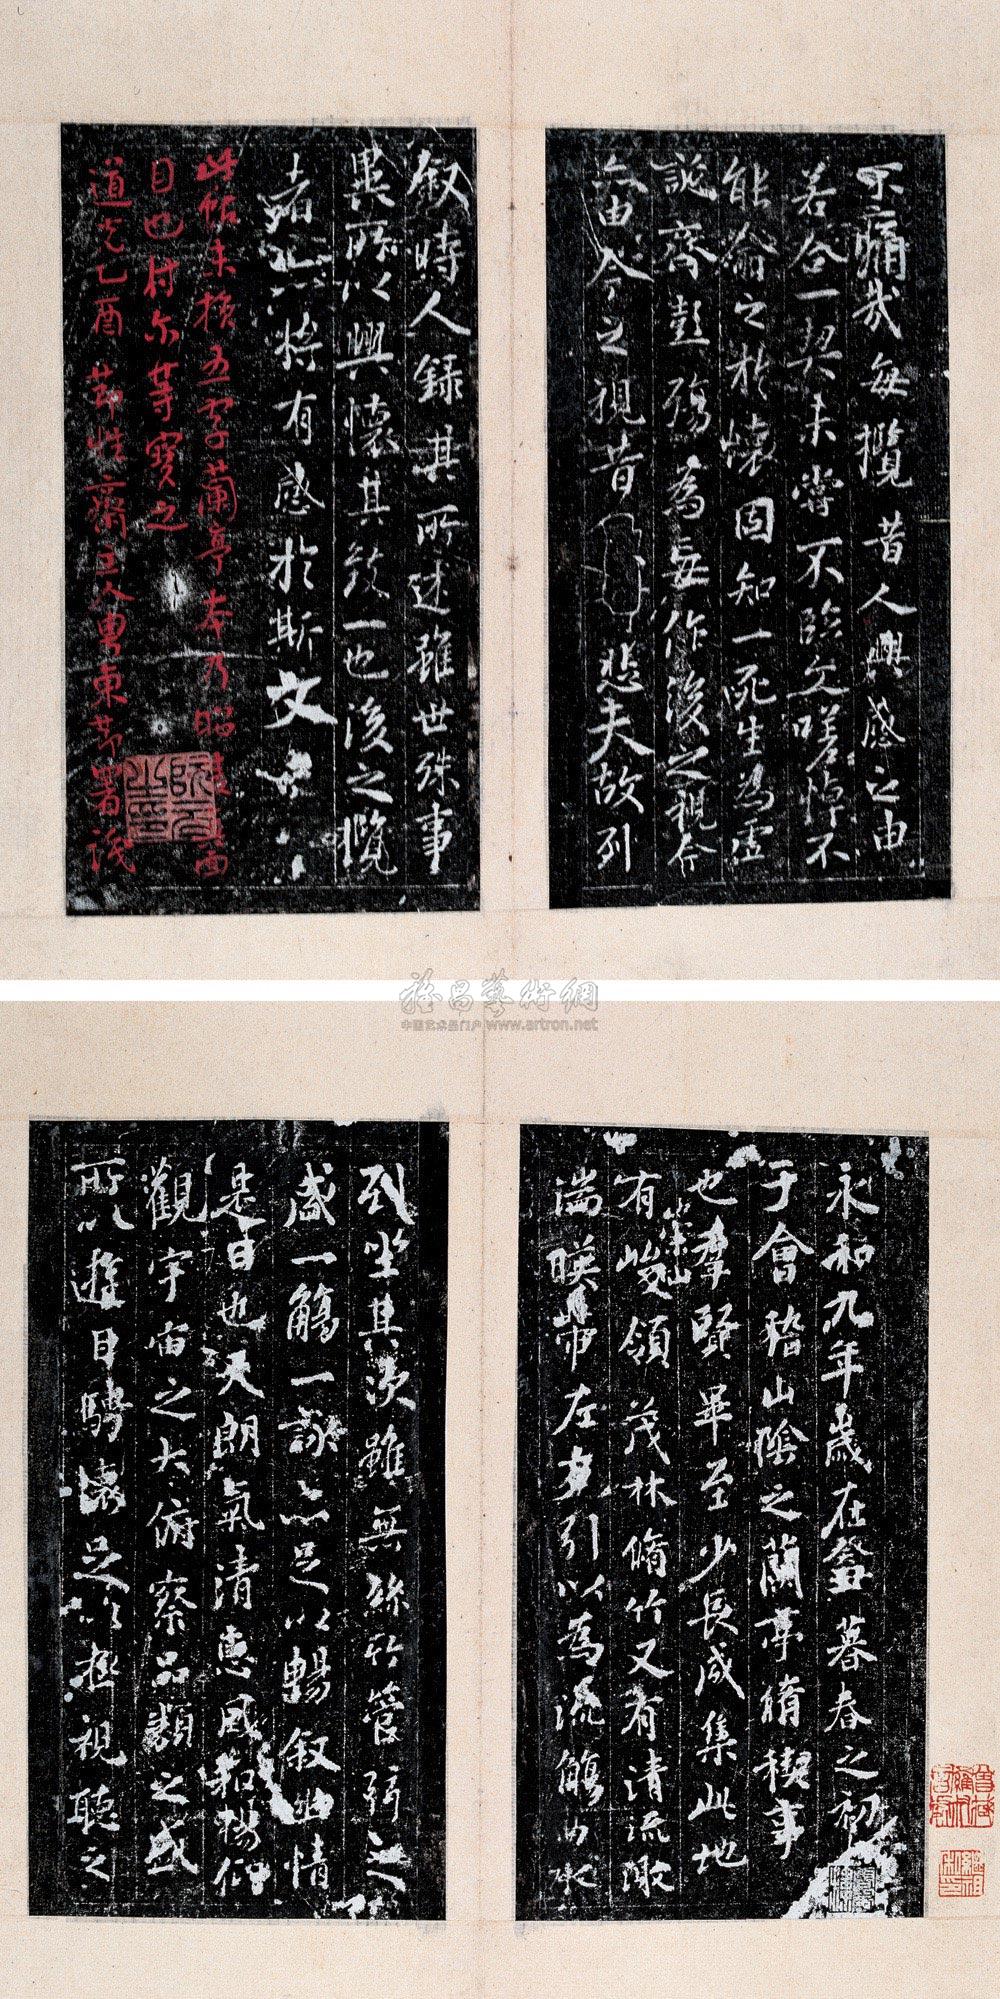 不痛哉每攬昔人興感之由
若合一契未嘗不臨文嗟悼不
能喻之於懷固知一死生為虛
誕齊彭殤為妄作後之視今
亦由今之視昔悲夫故列
叙時人錄其所述雖世殊事
異所以興懷其致一也後之攬
者亦將有感於斯文
此帖未損五字蘭亭本乃昭
目也付尔等寶之
道光乙酉節性齋主人
阮元之印
雅昌藝術網
中国艺术品门户 www.artron.net
永和九年歲在癸丑暮春之初
于會稽山陰之蘭亭脩稧事
也羣賢畢至少長咸集此地
有崇山峻領茂林脩竹又有清流激
湍暎帶左右引以為流觴曲水
列坐其次雖無絲竹管弦之
盛一觴一詠亦足以暢叙幽情
是日也天朗氣清惠風和暢仰
觀宇宙之大俯察品類之盛
所以遊目騁懷足以極視聽之